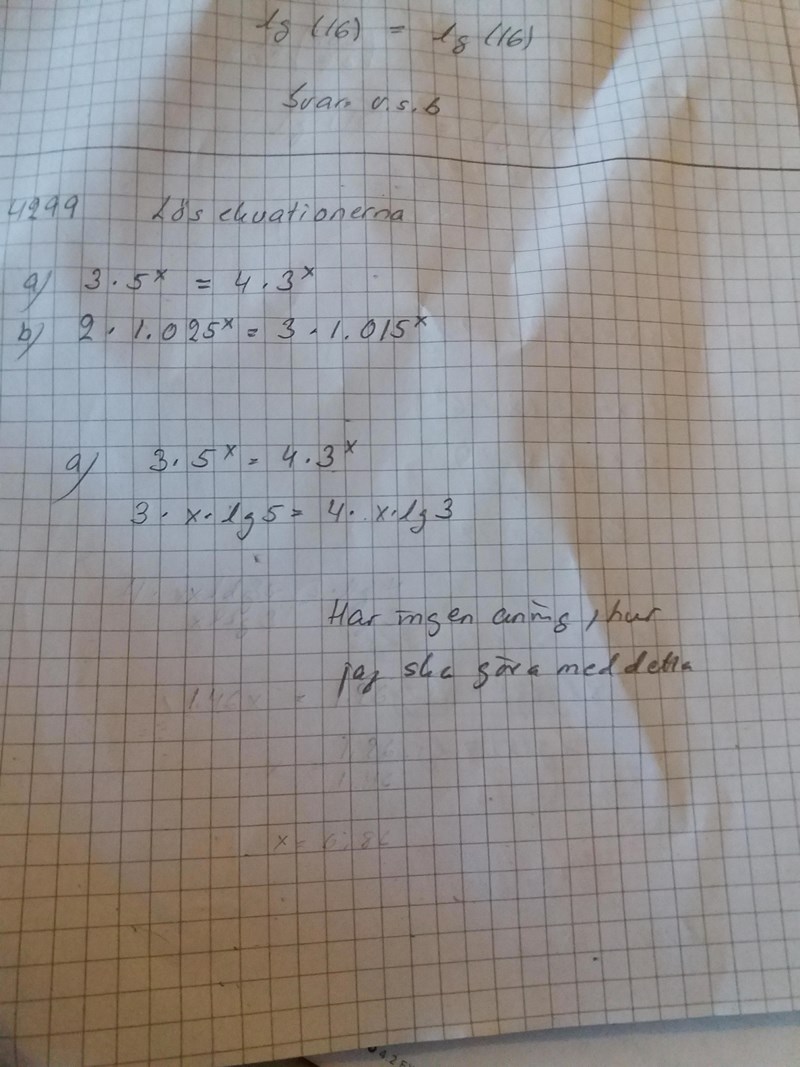 lg (16) = lg (16)
Svar. v.s.b
4299 Lös ekvationerna
a) 3 . 5ˣ = 4 . 3ˣ
b) 2 · 1.025ˣ = 3 · 1.015ˣ
a) 3. 5ˣ = 4.3ˣ
3 · x · lg 5 = 4 · x · lg 3
Har ingen aning, hur
jag ska göra med detta
x =